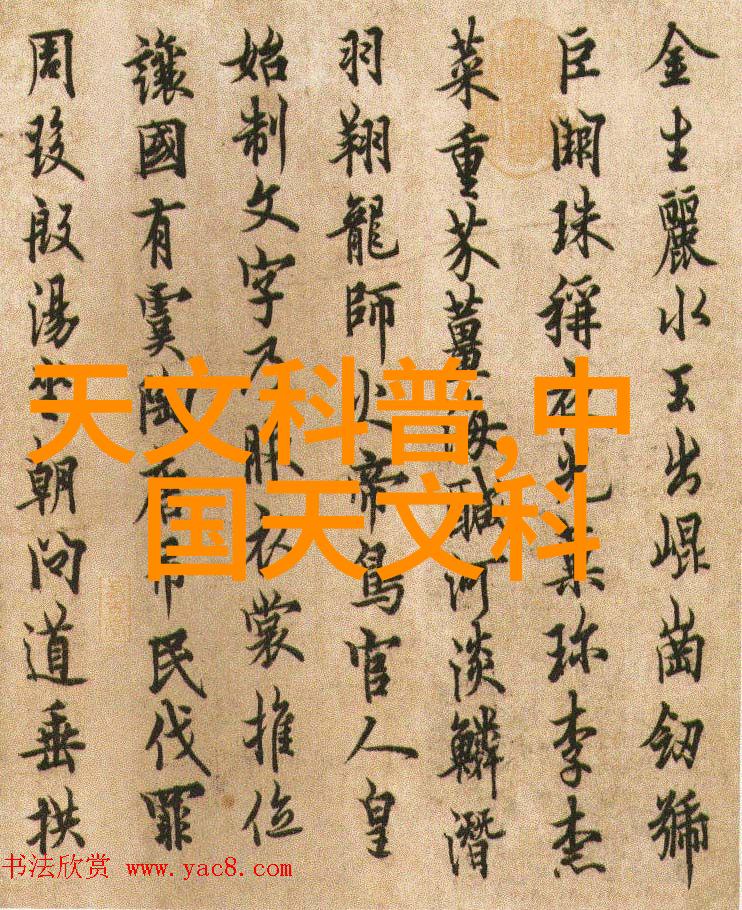 金生麗水玉出崐崗劒號
巨闕珠稱夜光菓珎李柰
菜重芥薑海醎河淡鱗潛
羽翔龍師火帝鳥官人皇
始制文字乃服衣裳推位
讓國有虞陶唐弔民伐罪
周發殷湯坐朝問道垂拱
天文科普,中
国天文科
书法欣赏 www.yac8.com